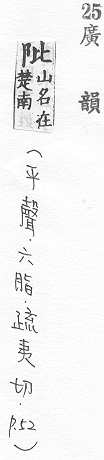 25廣韻
阰山名在
楚南
(平聲·六脂·疏夷切·P.52)